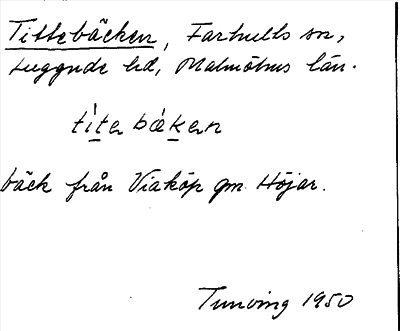 Tittebäcken, Farhults sn,
Luggude hd, Malmöhus län.
tìta bǽkan
bäck från Viaköp gm Höjar.
Tunving 1950